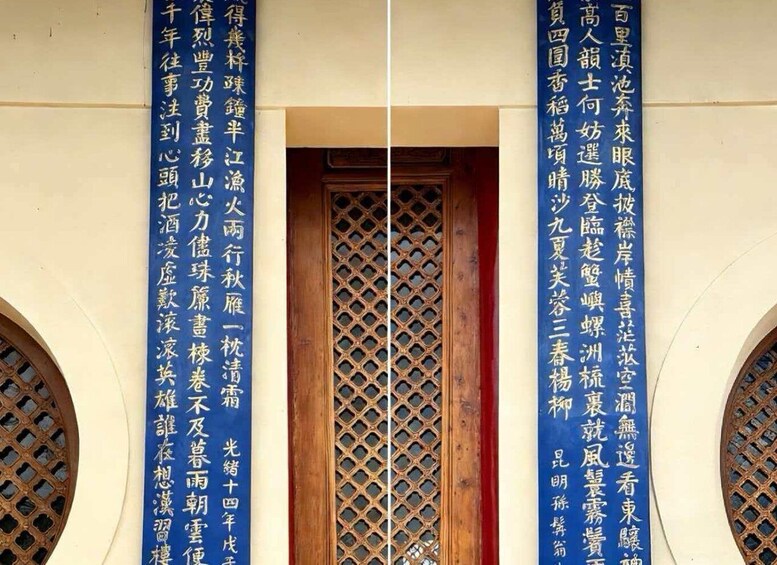 百里滇池奔來眼底披襟岸幘喜茫茫空濶無邊看東驤
高人韻士何妨選勝登臨趁蟹嶼螺洲梳裹就風鬟霧鬢
負四圍香稻萬頃晴沙九夏芙蓉三春楊柳
昆明孫髯翁
得幾杵疎鐘半江漁火兩行秋雁一枕清霜
光緒十四年戊子
偉烈豐功費盡移山心力儘珠簾畫棟卷不及暮雨朝雲便
千年往事注到心頭把酒凌虛歎滾滾英雄誰在想漢習樓